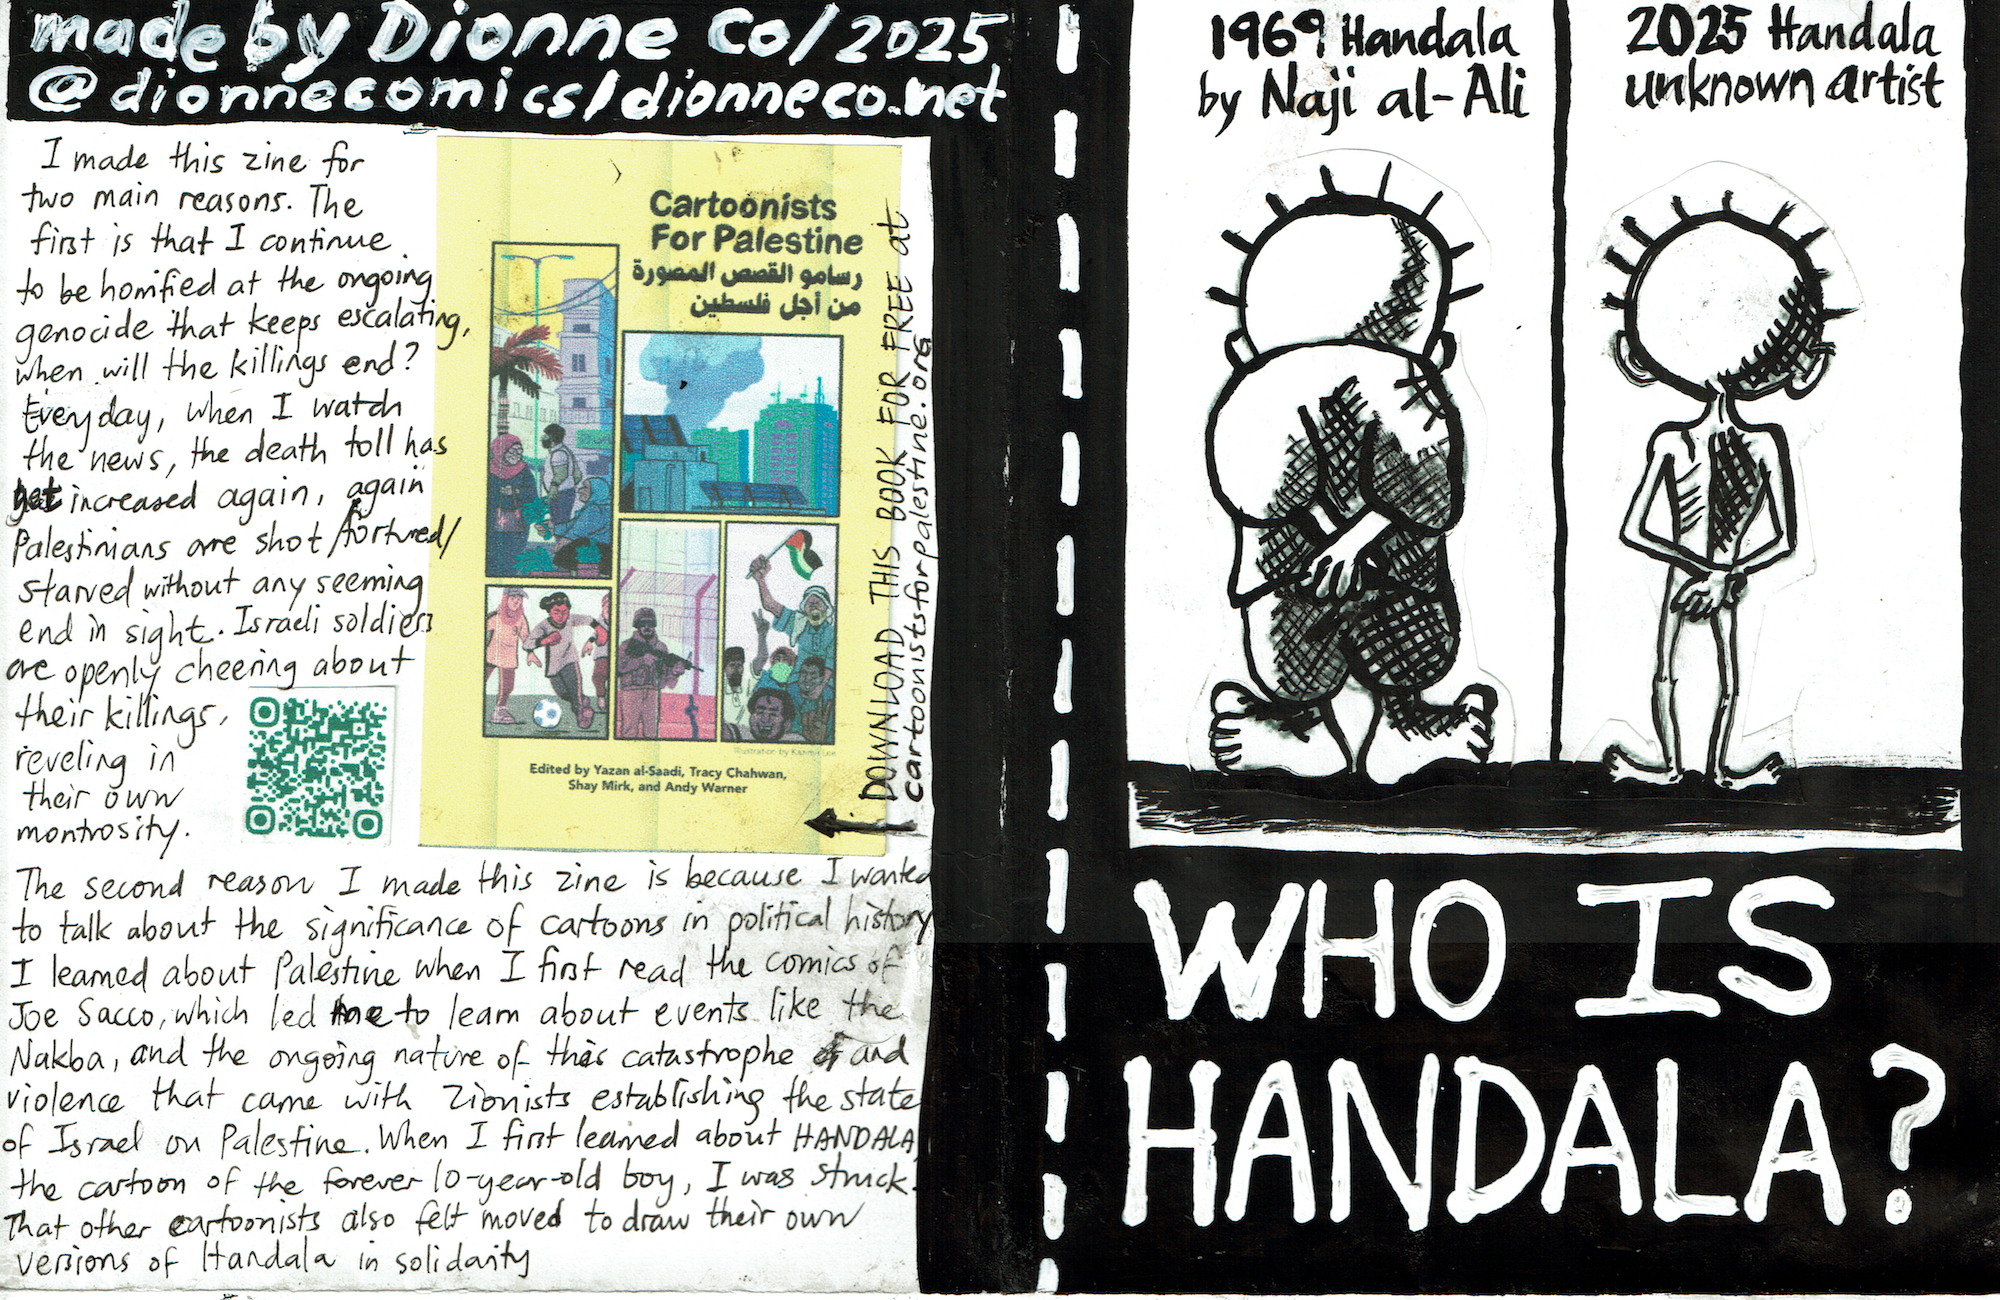 made by Dionne Co/2025
@dionnecomics/dionneco.net
I made this zine for
two main reasons. The
first is that I continue
to be horrified at the ongoing
genocide that keeps escalating,
when will the killings end?
Everyday, when I watch
the news, the death toll has
yet increased again, again
Palestinians are shot/tortured/
starved without any seeming
end in sight. Israeli soldiers
are openly cheering about
their killings,
reveling in
their own
montrosity.
Cartoonists
For Palestine
رسامو القصص المصورة
من أجل فلسطين
Illustration by
Edited by Yazan al-Saadi, Tracy Chahwan,
Shay Mirk, and Andy Warner
DOWNLOAD THIS BOOK FOR FREE at
cartoonistsforpalestine.org
The second reason I made this zine is because I wanted
to talk about the significance of cartoons in political history
I learned about Palestine when I first read the comics of
Joe Sacco, which led me to learn about events like the
Nakba, and the ongoing nature of this catastrophe and
violence that came with Zionists establishing the state
of Israel on Palestine. When I first learned about HANDALA,
the cartoon of the forever 10-year-old boy, I was struck.
That other cartoonists also felt moved to draw their own
versions of Handala in solidarity
1969 Handala
by Naji al-Ali
2025 Handala
unknown artist
WHO IS
HANDALA?